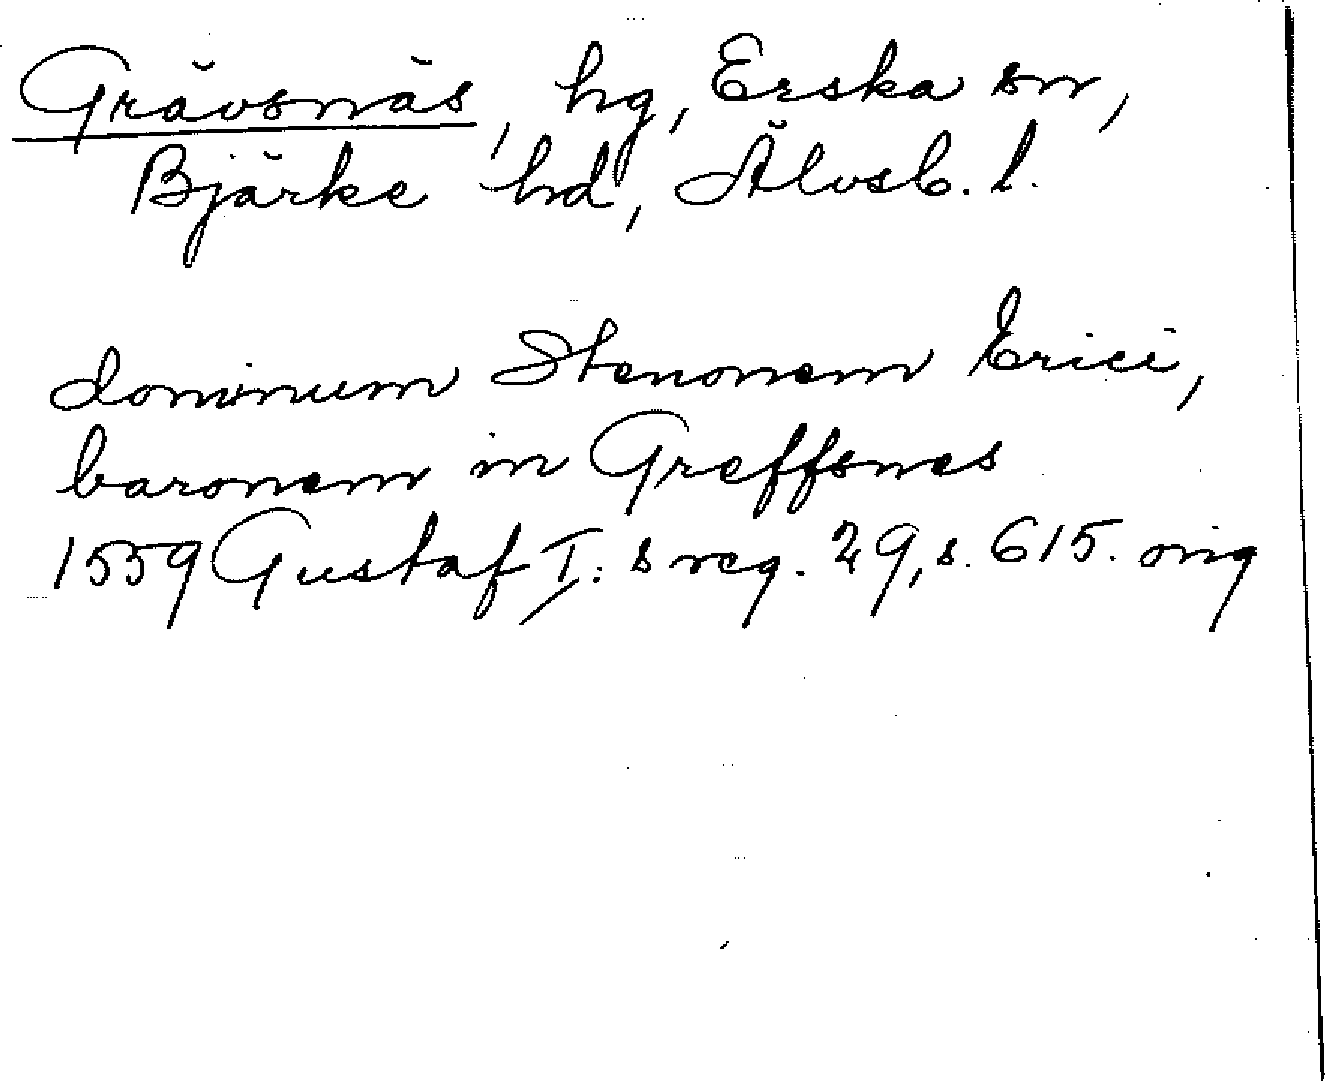 Grävsnäs, hg, Erska sn,
Bjärke hd, Älvsb. l.
dominum Stenonem Erici,
baronem in Greffsnes
1559 Gustaf I:s reg. 29, s. 615. orig